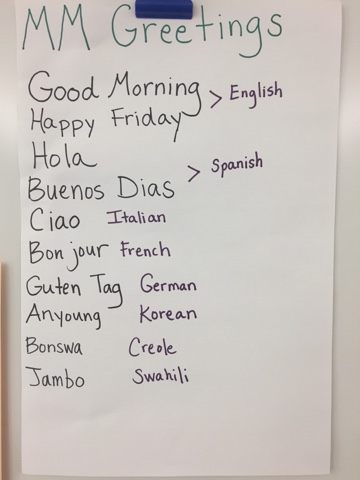 MM Greetings
Good Morning > English
Happy Friday
Hola > Spanish
Buenos Dias
Ciao Italian
Bon jour French
Guten Tag German
Anyoung Korean
Bonswa Creole
Jambo Swahili